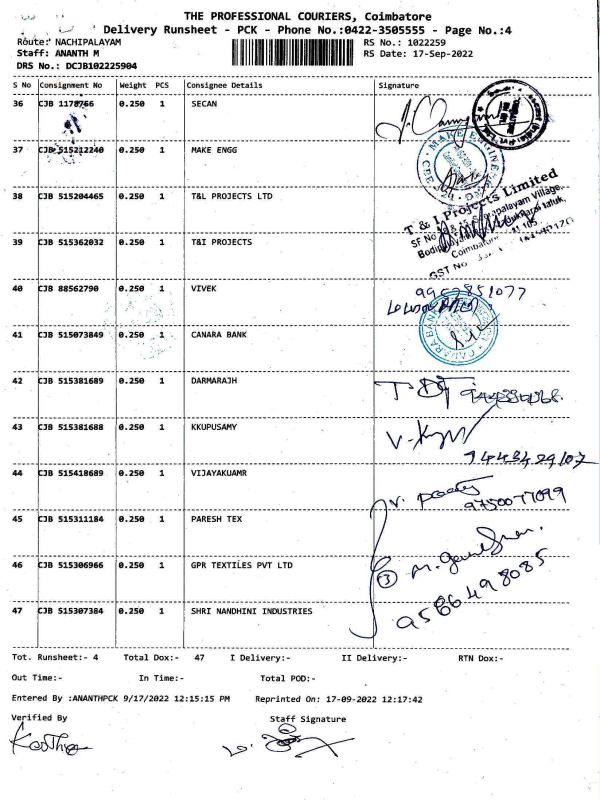 THE PROFESSIONAL COURIERS, Coimbatore
Delivery Runsheet - PCK - Phone No.:0422-3505555 - Page No.:4
Route: NACHIPALAYAM
RS No.: 1022259
Staff: ANANTH M
RS Date: 17-Sep-2022
DRS No.: DCJB102225904
S No Consignment No Weight PCS Consignee Details Signature
36 CJB 1178766 0.250 1 SECAN
37 CJB 515212240 0.250 1 MAKE ENGG
38 CJB 515204465 0.250 1 T&L PROJECTS LTD
T & I Projects Limited
39 CJB 515362032 0.250 1 T&I PROJECTS
GST No
40 CJB 88562790 0.250 1 VIVEK
41 CJB 515073849 0.250 1 CANARA BANK
CANARA BANK
42 CJB 515381689 0.250 1 DARMARAJH
43 CJB 515381688 0.250 1 KKUPUSAMY
9443429107
44 CJB 515418689 0.250 1 VIJAYAKUAMR
9750077099
45 CJB 515311184 0.250 1 PARESH TEX
46 CJB 515306966 0.250 1 GPR TEXTILES PVT LTD
3
9586498085
47 CJB 515307384 0.250 1 SHRI NANDHINI INDUSTRIES
Tot. Runsheet:- 4 Total Dox:- 47 I Delivery:- II Delivery:- RTN Dox:-
Out Time:- In Time:- Total POD:-
Entered By :ANANTHPCK 9/17/2022 12:15:15 PM Reprinted On: 17-09-2022 12:17:42
Verified By Staff Signature